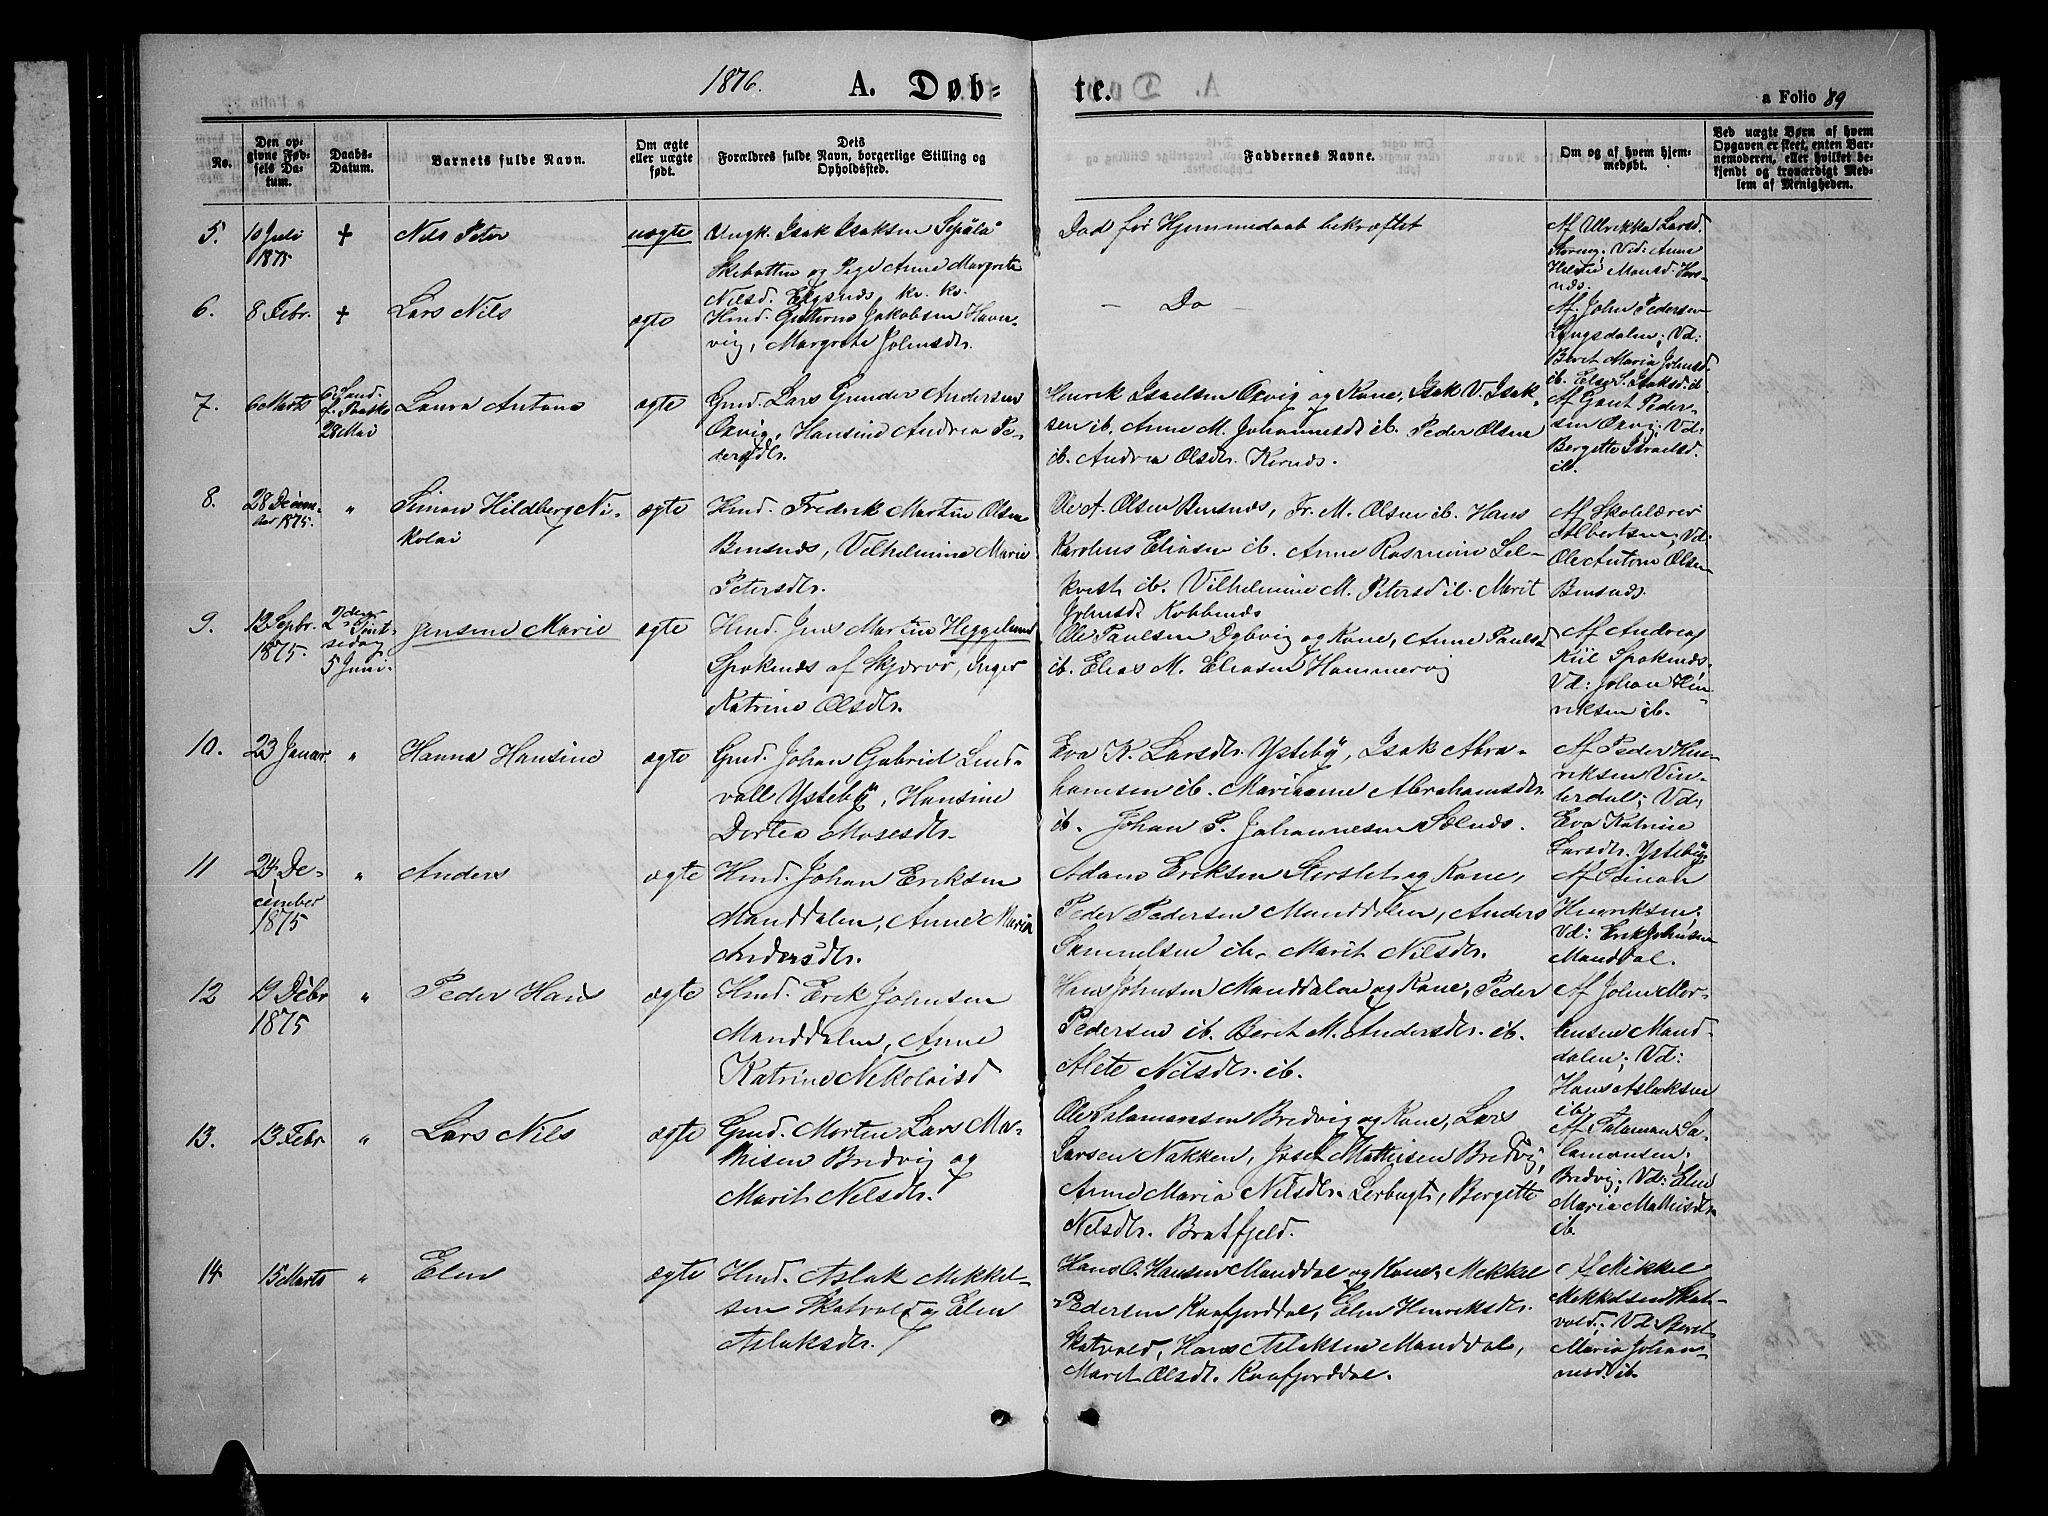 1876. A. Døb=
te.
a Folio 89
No.
Den op-
givne Fød-
sels Da-
tum.
Daabs-
Datum.
Barnets fulde Navn.
Om ægte
eller uægte
født.
Dets
Forældres fulde Navn, borgerlige Stilling og
Opholdssted.
Faddernes Navne.
Om og af hvem hjem-
medøbt.
Ved uægte Børn af hvem
Opgaven er skeet, enten Bar-
nemoderen, eller hvilket be-
kjendt og troværdigt Med-
lem af Menigheden.
5.
10 Juli
1875
+
Nils Peter
uægte
Ungk. Isak Isaksen Sepälä
Skibotten og Pige Anne Margrete
Nilsd. Elgsnæs kv. kv.
Død før Hjemmedaab bekræftet
Af Ulrikka Larsd.
Storeng; Vid: Anne
Monsd. Hors-
næs.
6.
8 Febr.
+
Lars Nils
ægte
Hmd. Guttorm Jakobsen Havn-
vig, Margrete Johnsdtr.
— Do —
Af John Pedersen
Lyngsdalen; Vd:
Beret Maria Johnsd.
ib. Else S. Isaksd. ib
7.
6 Marts
6 Sønd.
f. Paaske
28 Mai
Laura Antona
ægte
Gmd. Lars Gunder Andersen
Oxvig, Hansine Andrea Pe-
dersdtr.
Henrik Isaelsen Oxvig og Kone, Isak V. Isak-
sen ib. Anne M. Johannesdt ib. Peder Olsen
ib. Andrea Olsdtr. Kvnæs.
Af Gout Peder-
sen Oxvig; Vd:
Bergette Israelsd.
ib.
8.
28 Decem-
ber 1875.
"
Simon Hildberg Ni-
kolai
ægte
Hmd. Fredrik Martin Olsen
Bensnæs, Vilhelmine Marie
Petersdtr.
Ole A. Olsen Bensnæs, Fr. M. Olsen ib. Hans
Karolius Eliasen ib. Anne Rasmine Lel-
kvist ib. Vilhelmine M. Petersd ib. Marit
Johnsdt Kobbenæs
Af Skolelærer
Albertsen; Vd:
Ole Anton Olsen
Bensnæs.
9.
12 Sepbr.
1875.
2den
Pint-
sedag
5 Juni.
Jensine Marie
ægte
Hmd. Jens Martin Heggelund
Spaknæs af Skjærvø, Inger
Katrine Olsdtr.
Ole Paulsen Dybvig og Kone, Anne Paulsd
ib. Elias M. Eliasen Hammervig
Af Andreas
Kiil Spaknæs.
Vd: Johan Hen-
riksen ib.
10.
23 Januar
"
Hanna Hansine
ægte
Gmd. Johan Gabriel Lind-
vall Ysteby, Hansine
Dortea Mosesdtr.
Eva K. Larsdtr. Ysteby, Isak Abra-
hamsen ib. Marianne Abrahamsdtr
ib. Johan P. Johannesen Solnæs.
Af Peder Hen-
riksen Vin-
terdal; Vd:
Eva Katrine
Larsdtr. Ysteby
11
24 De-
cember
1875
"
Anders
ægte
Hmd. Johan Eriksen
Manddalen, Anne Maria
Andersdtr.
Adam Eriksen Storslet og Kone,
Peder Pedersen Manddalen, Anders
Samuelsen ib. Marit Nilsdtr.
Af Simon
Henriksen;
Vd: Erik Johnsen
Manddal.
12
19 Decbr
1875
"
Peder Hans
ægte
Hmd. Erik Johnsen
Manddalen, Anne
Katrine Nikolaisd
Hans Johnsen Manddalen og Kone, Peder
Pedersen ib. Beret M. Andersdtr. ib.
Alete Nilsdtr. ib.
Af John Mor-
tensen Mand-
dalen; Vd:
Hans Aslaksen
ib.
13.
13 Febr
"
Lars Nils
ægte
Gmd. Morten Lars Ma-
thisen Bredvig og
Marit Nilsdtr.
Ole Salamonsen Bredvig og Kone, Lars
Larsen Nakken, Josef Mathisen Bredvig,
Anne Maria Nilsdtr. Lerbugt, Bergette
Nilsdtr. Bratfjeld.
Af Salamon Sa-
lamonsen;
Bredvig; Vd: Elen
Maria Mathisdtr
ib.
14
15 Marts
"
Elen
ægte
Hmd. Aslak Mikkel-
sen Skatvold og Elen
Aslaksdtr.
Hans O. Hansen Manddal og Kone, Mikkel
Pedersen Kaafjorddal, Elen Henriksdtr.
Skatvold, Hans Aslaksen Manddal,
Marit Olsdtr. Kaafjorddal.
Af Mikkel
Mikkelsen Skat-
vold; Vd: Beret
Maria Johan-
nesd. ib.